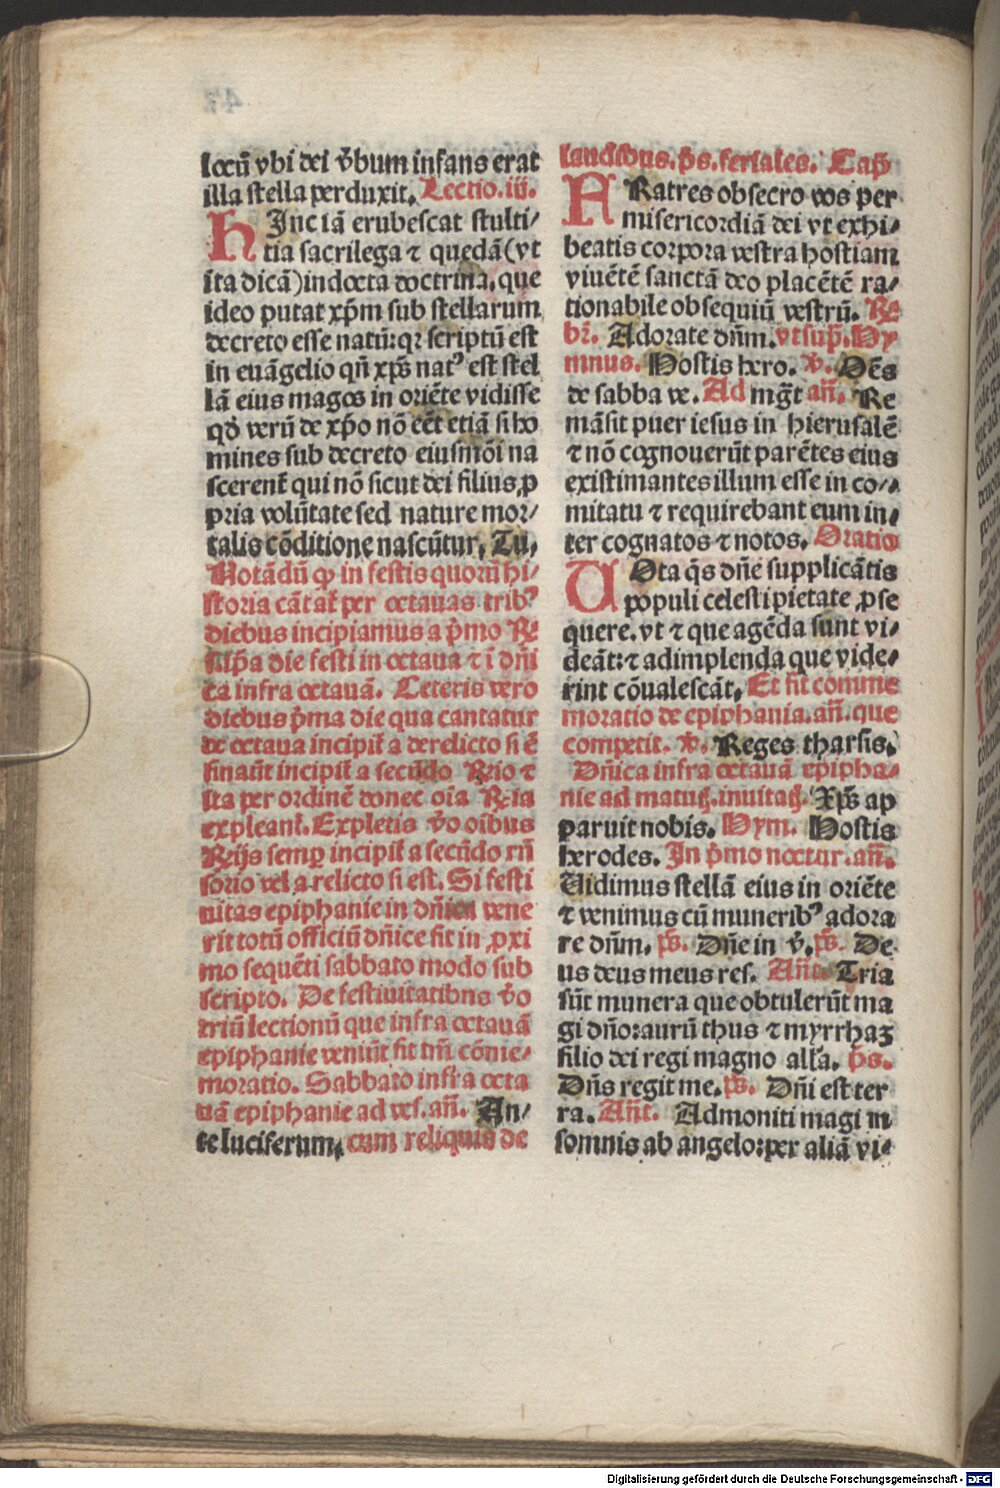 locū vbi dei v̄bum infans erat
illa stella perduxit. Lectio. iii.
HInc iā erubescat stulti/
tia sacrilega ⁊ quedā (vt
ita dicā) indocta doctrina, que
ideo putat xp̄m sub stellarum
decreto esse natū: qꝛ scriptū est
in euāgelio qn̄ xp̄s natꝰ est stel
lā eius magos in oriēte vidisse
qd̓ verū de xp̄o nō eēt etiā si ho
mines sub decreto eiusmōi na
scerent᷑ qui nō sicut dei filius ꝓ
pria volūtate sed nature mor/
talis cōditione nascūtur. Tu.
Notādū ꝙ in festis quorū hi/
storia cātat᷑ per octauas tribꝰ
diebus incipiamus a p̄mo Re
sup̄a die festi in octaua ⁊ ī dn̄i
ca infra octauā. Ceteris vero
diebus p̄ma die qua cantatur
de octaua incipit᷑ a derelicto si ē
sinaūt incipit᷑ a secūdo Rn̄io ⁊
ita per ordinē donec oīa Rn̄ia
expleant᷑. Expletis v̄o oībus
Rn̄ijs semꝑ incipit᷑ a secūdo rn̄
sorio vel a relicto si est. Si festi
uitas epiphanie in dn̄ica vene
rit totū officiū dn̄ice fit in ꝓxi
mo sequēti sabbato modo sub
scripto. De festiuitatibus v̄o
triū lectionū que infra octauā
epiphanie veniūt fit tm̄ cōme/
moratio. Sabbato infra octa
uā epiphanie ad ves. an̄. An/
te luciferum. cum reliquis de
laudibus. p̄s. feriales. Cap̄
FRatres obsecro vos per
misericordiā dei vt exhi/
beatis corpora vestra hostiam
viuētē sanctā deo placētē ra/
tionabile obsequiū vestrū. Re
br̄. Adorate dn̄m. vt sup̄. Hy
mnus. Hostis hero. v̄. Oēs
de sabba ve. Ad mg̅t an̄. Re
māsit puer iesus in hierusalē
⁊ nō cognouerūt parētes eius
existimantes illum esse in co/
mitatu ⁊ requirebant eum in/
ter cognatos ⁊ notos. Oratio
UOta q̄s dn̄e supplicātis
populi celesti pietate ꝓse
quere. vt ⁊ que agēda sunt vi/
deāt: ⁊ adimplenda que vide/
rint cōualescāt. Et fit comme
moratio de epiphania. an̄. que
competit. v̄. Reges tharsis.
Dn̄ica infra octauā epipha/
nie ad matut᷑. inuitat᷑. Xp̄s ap
paruit nobis. Hym. Hostis
herodes. In p̄mo noctur. an̄.
Uidimus stellā eius in oriēte
⁊ venimus cū muneribꝰ adora
re dn̄m. ps̄. Dn̄e in v̄. ps̄. De
us deus meus res. An̄t. Tria
sūt munera que obtulerūt ma
gi dn̄o: aurū thus ⁊ myrrhaꝫ
filio dei regi magno alla. p̄s.
Dn̄s regit me. ps̄. Dn̄i est ter
ra. An̄t. Admoniti magi in
somnis ab angelo: per aliā vi/
Digitalisierung gefördert durch die Deutsche Forschungsgemeinschaft - DFG